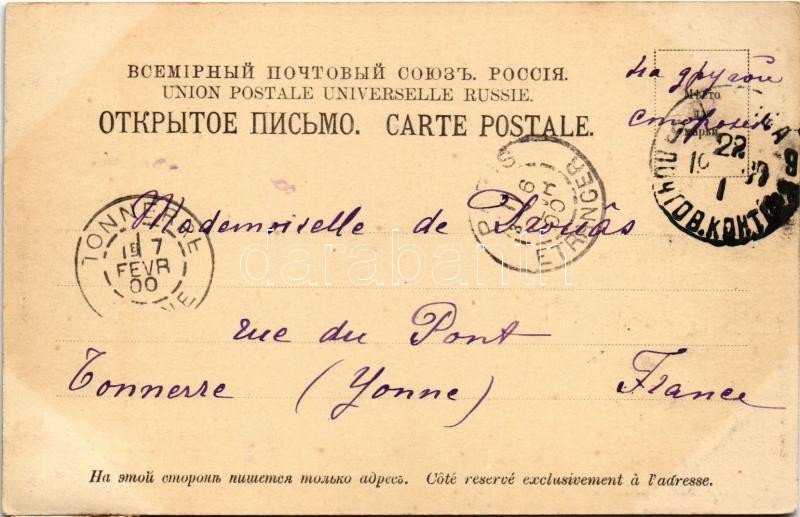 ВСЕМІРНЫЙ ПОЧТОВЫЙ СОЮЗЪ. РОССІЯ.
UNION POSTALE UNIVERSELLE RUSSIE.
ОТКРЫТОЕ ПИСЬМО. CARTE POSTALE.
на другой
сторонѣ
Мѣсто
марки
22
1
ПОЧТОВ. КОНТ
PARIS
ETRANGER
TONNERRE
7
FEVR
00
Mademoiselle de
darabanth
rue du Pont
Tonnerre (Yonne) France
На этой сторонѣ пишется только адресъ. Côté reservé exclusivement à l'adresse.